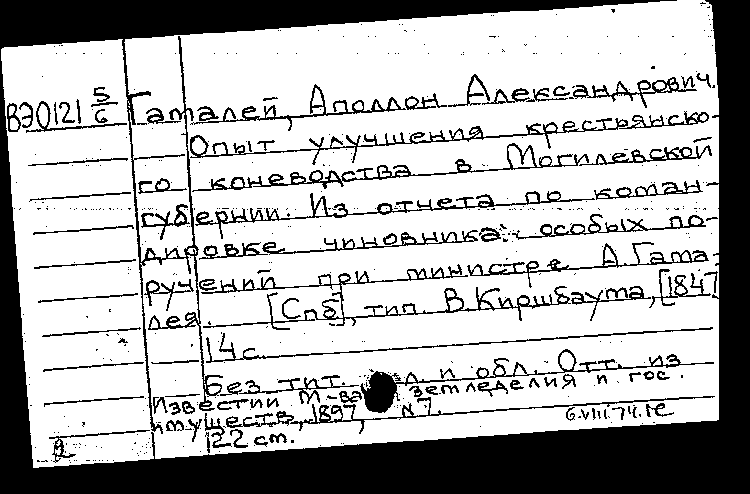 ВЭ0121 5/6 Гаталей, Аполлон Александрович.
Опыт улучшения крестьянско-
го коневодства в Могилевской
губернии. Из отчета по коман-
дировке чиновника особых по-
ручений при министре А. Гата-
лея. [Спб], тип. В. Киршбаума, [1847
14 с.
Без тит. л. и обл. Отт. из
Известий М-ва земледелия и гос.
имуществ, 1897, №7.
22 cm.
6.VIII.74.
2